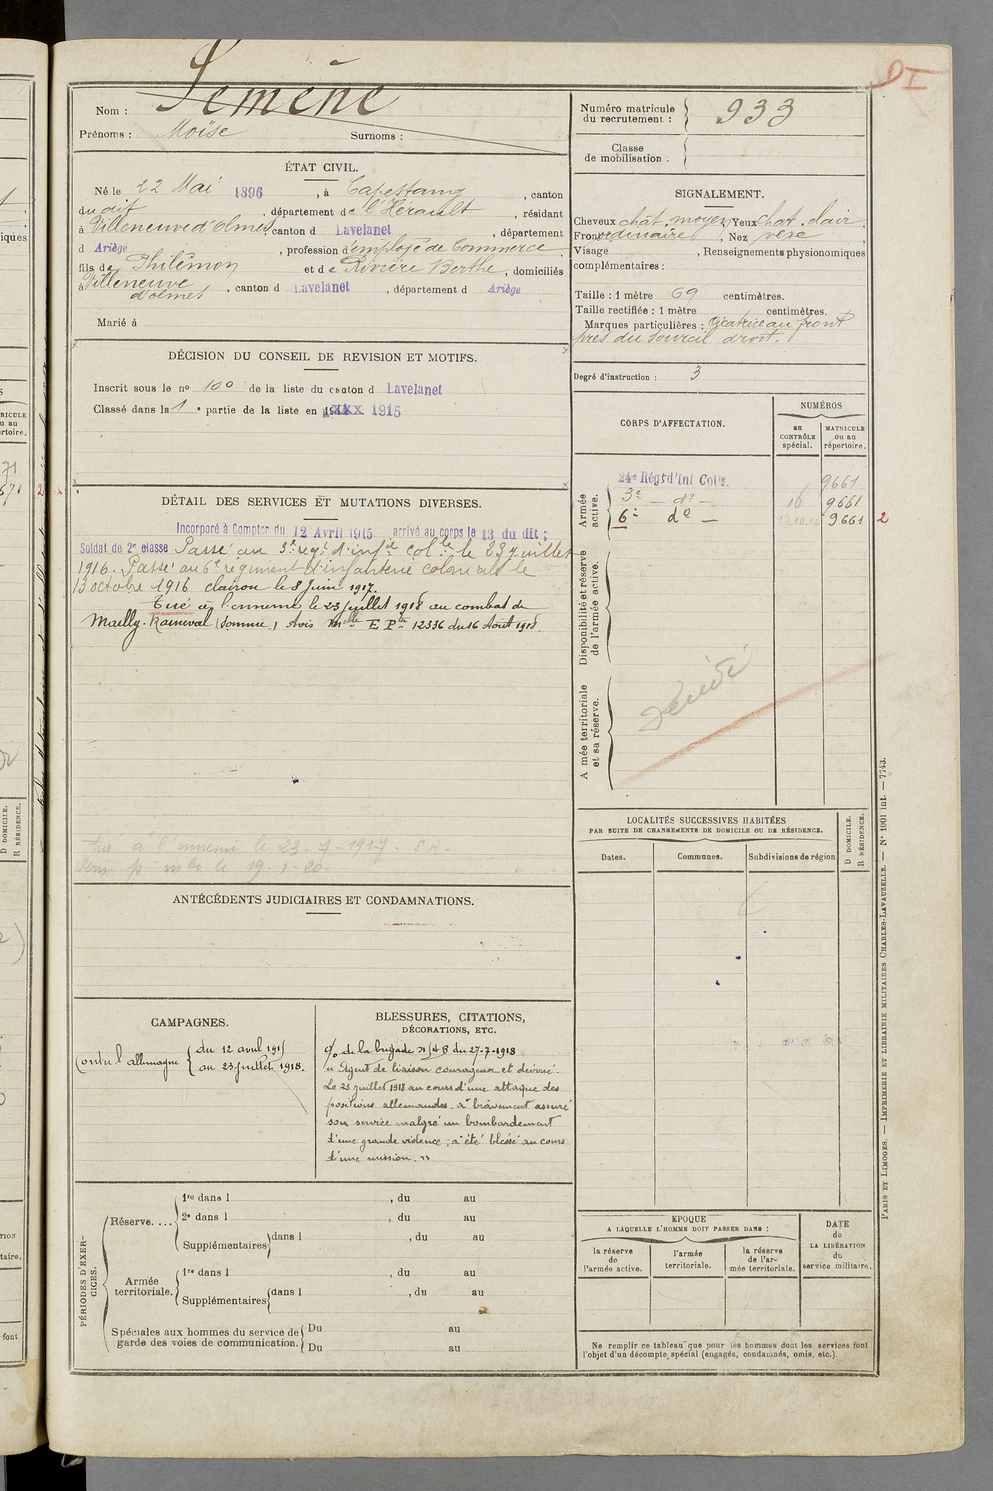 Nom : Semène
Prénoms : Moïse Surnoms :
Numéro matricule du recrutement : 933
Classe de mobilisation :
ÉTAT CIVIL.
Né le 22 Mai 1896, à Capestang, canton
du dit, département de l'Hérault, résidant
à Villeneuve d'olmes canton d Lavelanet, département
d Ariège, profession d'employé de Commerce
fils de Philémon et de Rivière Berthe, domiciliés
à Villeneuve d'olmes, canton d Lavelanet, département d Ariège
Marié à
SIGNALEMENT.
Cheveux chât. moyen Yeux chât. clair
Front ordinaire, Nez
Visage, Renseignements physionomiques
complémentaires :
Taille : 1 mètre 69 centimètres.
Taille rectifiée : 1 mètre centimètres.
Marques particulières : Cicatrice au front
près du sourcil droit.
Degré d'instruction : 3
DÉCISION DU CONSEIL DE REVISION ET MOTIFS.
Inscrit sous le no 100 de la liste du canton d Lavelanet
Classé dans la 1e partie de la liste en 1915
DÉTAIL DES SERVICES ET MUTATIONS DIVERSES.
Incorporé à Compter du 12 Avril 1915 arrivé au corps le 13 du dit ;
Soldat de 2e classe Passé au 3e régt d'infie colle le 23 juillet
1916. Passé au 6e régiment d'infanterie coloniale le
13 octobre 1916 clairon le 8 Juin 1917.
Tué à l'ennemi le 23 juillet 1918 au combat de
Mailly-Raineval (Somme) Avis Melle E Ptr 12336 du 16 Août 1918.
tué à l'ennemi le 23-7-1917
le 19-1-20.
CORPS D'AFFECTATION.
NUMÉROS
au CONTRÔLE spécial.
MATRICULE ou au répertoire.
Armée active.
24e Régt d'Inf Colle. 9661
3e — do — 16 9661
6e do — 9661 2
Disponibilité et réserve de l'armée active.
Armée territoriale et sa réserve.
Décédé
LOCALITÉS SUCCESSIVES HABITÉES
PAR SUITE DE CHANGEMENTS DE DOMICILE OU DE RÉSIDENCE.
Dates.
Communes.
Subdivisions de région
D DOMICILE.
R RÉSIDENCE.
ANTÉCÉDENTS JUDICIAIRES ET CONDAMNATIONS.
CAMPAGNES.
Contre l'allemagne du 12 avril 1915
au 23 juillet 1918.
BLESSURES, CITATIONS,
DÉCORATIONS, ETC.
o/o de la brigade du 27-7-1918
« Agent de liaison courageux et dévoué.
Le 23 juillet 1918 au cours d'une attaque des
positions allemandes, a bravement assuré
son service malgré un bombardement
d'une grande violence ; a été blessé au cours
d'une mission. »
PÉRIODES D'EXERCICES.
Réserve....
1re dans l , du au
2e dans l , du au
Supplémentaires dans l , du au
Armée territoriale.
1re dans l , du au
Supplémentaires dans l , du au
Spéciales aux hommes du service de garde des voies de communication.
Du au
Du au
EPOQUE
A LAQUELLE L'HOMME DOIT PASSER DANS :
la réserve de l'armée active.
l'armée territoriale.
la réserve de l'armée territoriale.
DATE de LA LIBÉRATION du service militaire.
Ne remplir ce tableau que pour les hommes dont les services font
l'objet d'un décompte spécial (engagés, condamnés, omis, etc.).
PARIS ET LIMOGES. — IMPRIMERIE ET LIBRAIRIE MILITAIRES CHARLES-LAVAUZELLE. — No 1001 Int. — 7743.